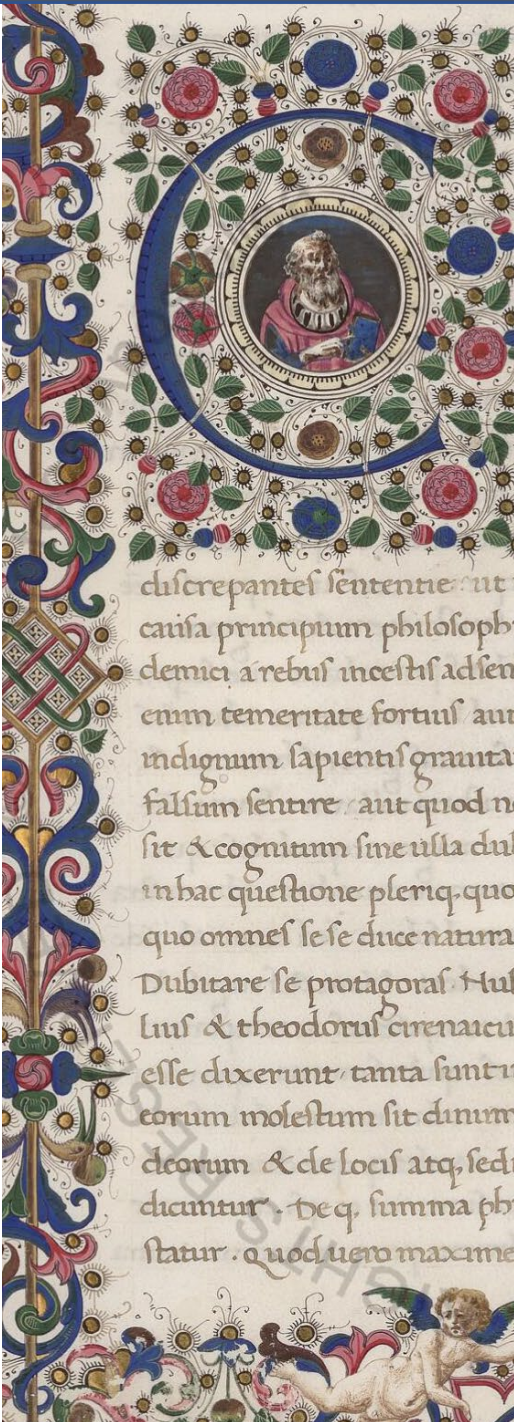 C
discrepantes sententie ut
causa principium philosoph
demici a rebus incestis adsen
enim temeritate fortius aut
indignum sapientis grauita
falsum sentire aut quod n
sit & cognitum sine ulla dub
in hac questione pleriq; quo
quo omnes se se duce natura
Dubitare se protagoras Nul
lius & theodorus cirenaicu
esse dixerunt tanta sunt i
eorum molestum sit dinum
deorum & de locis atq; sedi
dicuntur. Deq; summa ph
statur. quod uero maxime